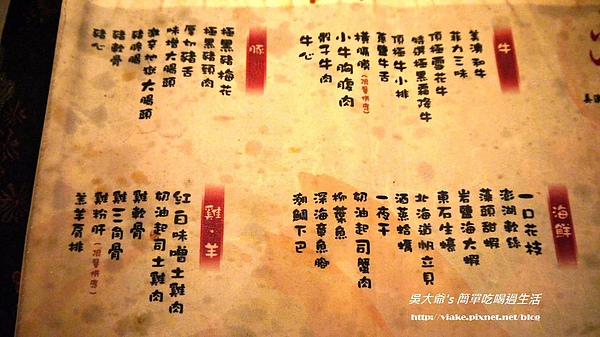 牛
美澳和牛
菲力三味
頂極雪花牛
特選極黑霜降牛
頂極牛小排
蔥鹽牛舌
橫膈膜(限量供應)
小牛胸腹肉
骰子牛肉
牛心
豚
極黑豬梅花
極黑豬頸肉
厚切豬舌
味增大腸頭
激辛地獄大腸頭
豬腕腸
豬軟骨
豬心
海鮮
一口花枝
澎湖軟絲
藻頭甜蝦
岩鹽海大蝦
東石生蠔
北海道帆立貝
酒蒸蛤蠣
一夜干
奶油起司蟹肉
柳葉魚
深海章魚腳
潮鯛下巴
雞・羊
紅白味噌土雞肉
奶油起司土雞肉
雞軟骨
雞三角骨
雞粉肝(限量供應)
羔羊肩排
吳大爺's 簡單吃喝過生活
http://viake.pixnet.net/blog